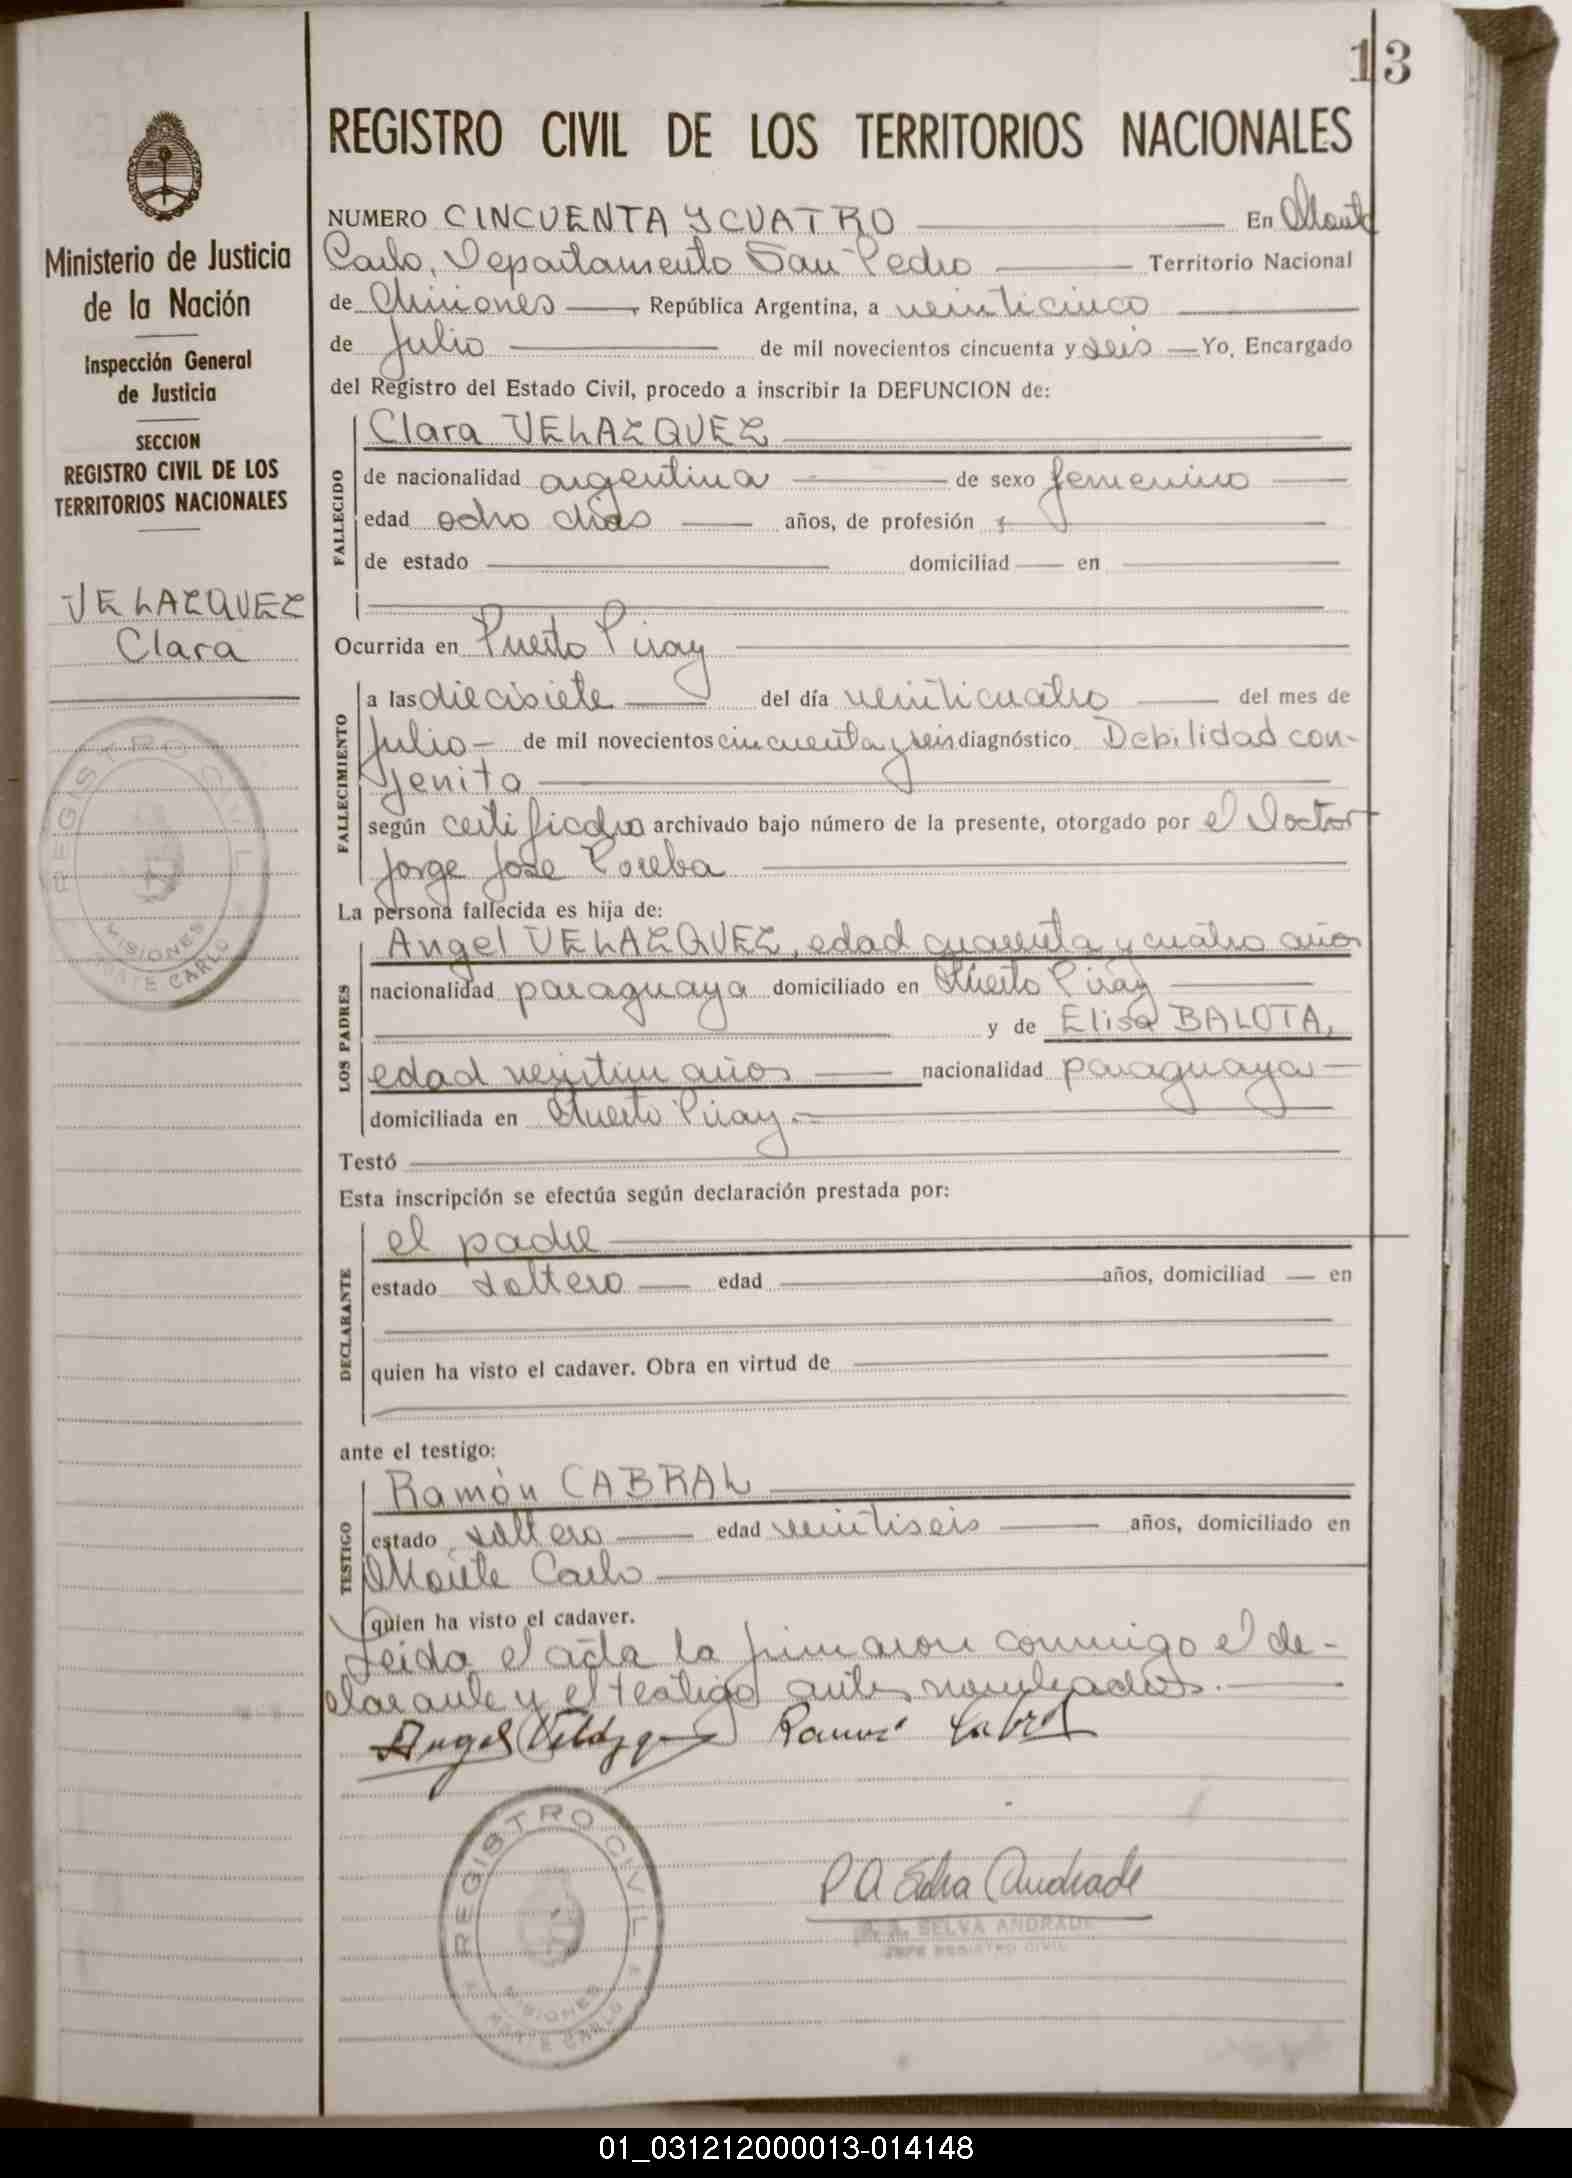 13
Ministerio de Justicia
de la Nación
Inspección General
de Justicia
SECCION
REGISTRO CIVIL DE LOS
TERRITORIOS NACIONALES
VELAZQUEZ
Clara
REGISTRO CIVIL
MISIONES
MONTE CARLO
REGISTRO CIVIL DE LOS TERRITORIOS NACIONALES
NUMERO CINCUENTA Y CUATRO En Monte
Carlo, Departamento San Pedro Territorio Nacional
de Misiones, República Argentina, a veinticinco
de Julio de mil novecientos cincuenta y seis Yo, Encargado
del Registro del Estado Civil, procedo a inscribir la DEFUNCION de:
FALLECIDO
Clara VELAZQUEZ
de nacionalidad argentina de sexo femenino
edad ocho dias años, de profesión
de estado domiciliad en
Ocurrida en Puerto Piray
FALLECIMIENTO
a las diecisiete del día veinticuatro del mes de
Julio de mil novecientos cincuenta y seis diagnóstico Debilidad con-
jenita
según certificado archivado bajo número de la presente, otorgado por el Doctor
Jorge José Poreba
La persona fallecida es hija de:
LOS PADRES
Angel VELAZQUEZ, edad cuarenta y cuatro años
nacionalidad paraguaya domiciliado en Puerto Piray
y de Elisa BALOTA,
edad veintiun años nacionalidad paraguaya
domiciliada en Puerto Piray.
Testó
Esta inscripción se efectúa según declaración prestada por:
DECLARANTE
el padre
estado soltero edad años, domiciliad en
quien ha visto el cadaver. Obra en virtud de
ante el testigo:
TESTIGO
Ramón CABRAL
estado soltero edad veintiseis años, domiciliado en
Monte Carlo
quien ha visto el cadaver.
Leida el acta la firmaron conmigo el de-
clarante y el testigo antes nombrados.
Angel Velazquez Ramon Cabral
REGISTRO CIVIL
MISIONES
MONTE CARLO
P A Selva Andrade
P. A. SELVA ANDRADE
JEFE REGISTRO CIVIL
01_031212000013-014148